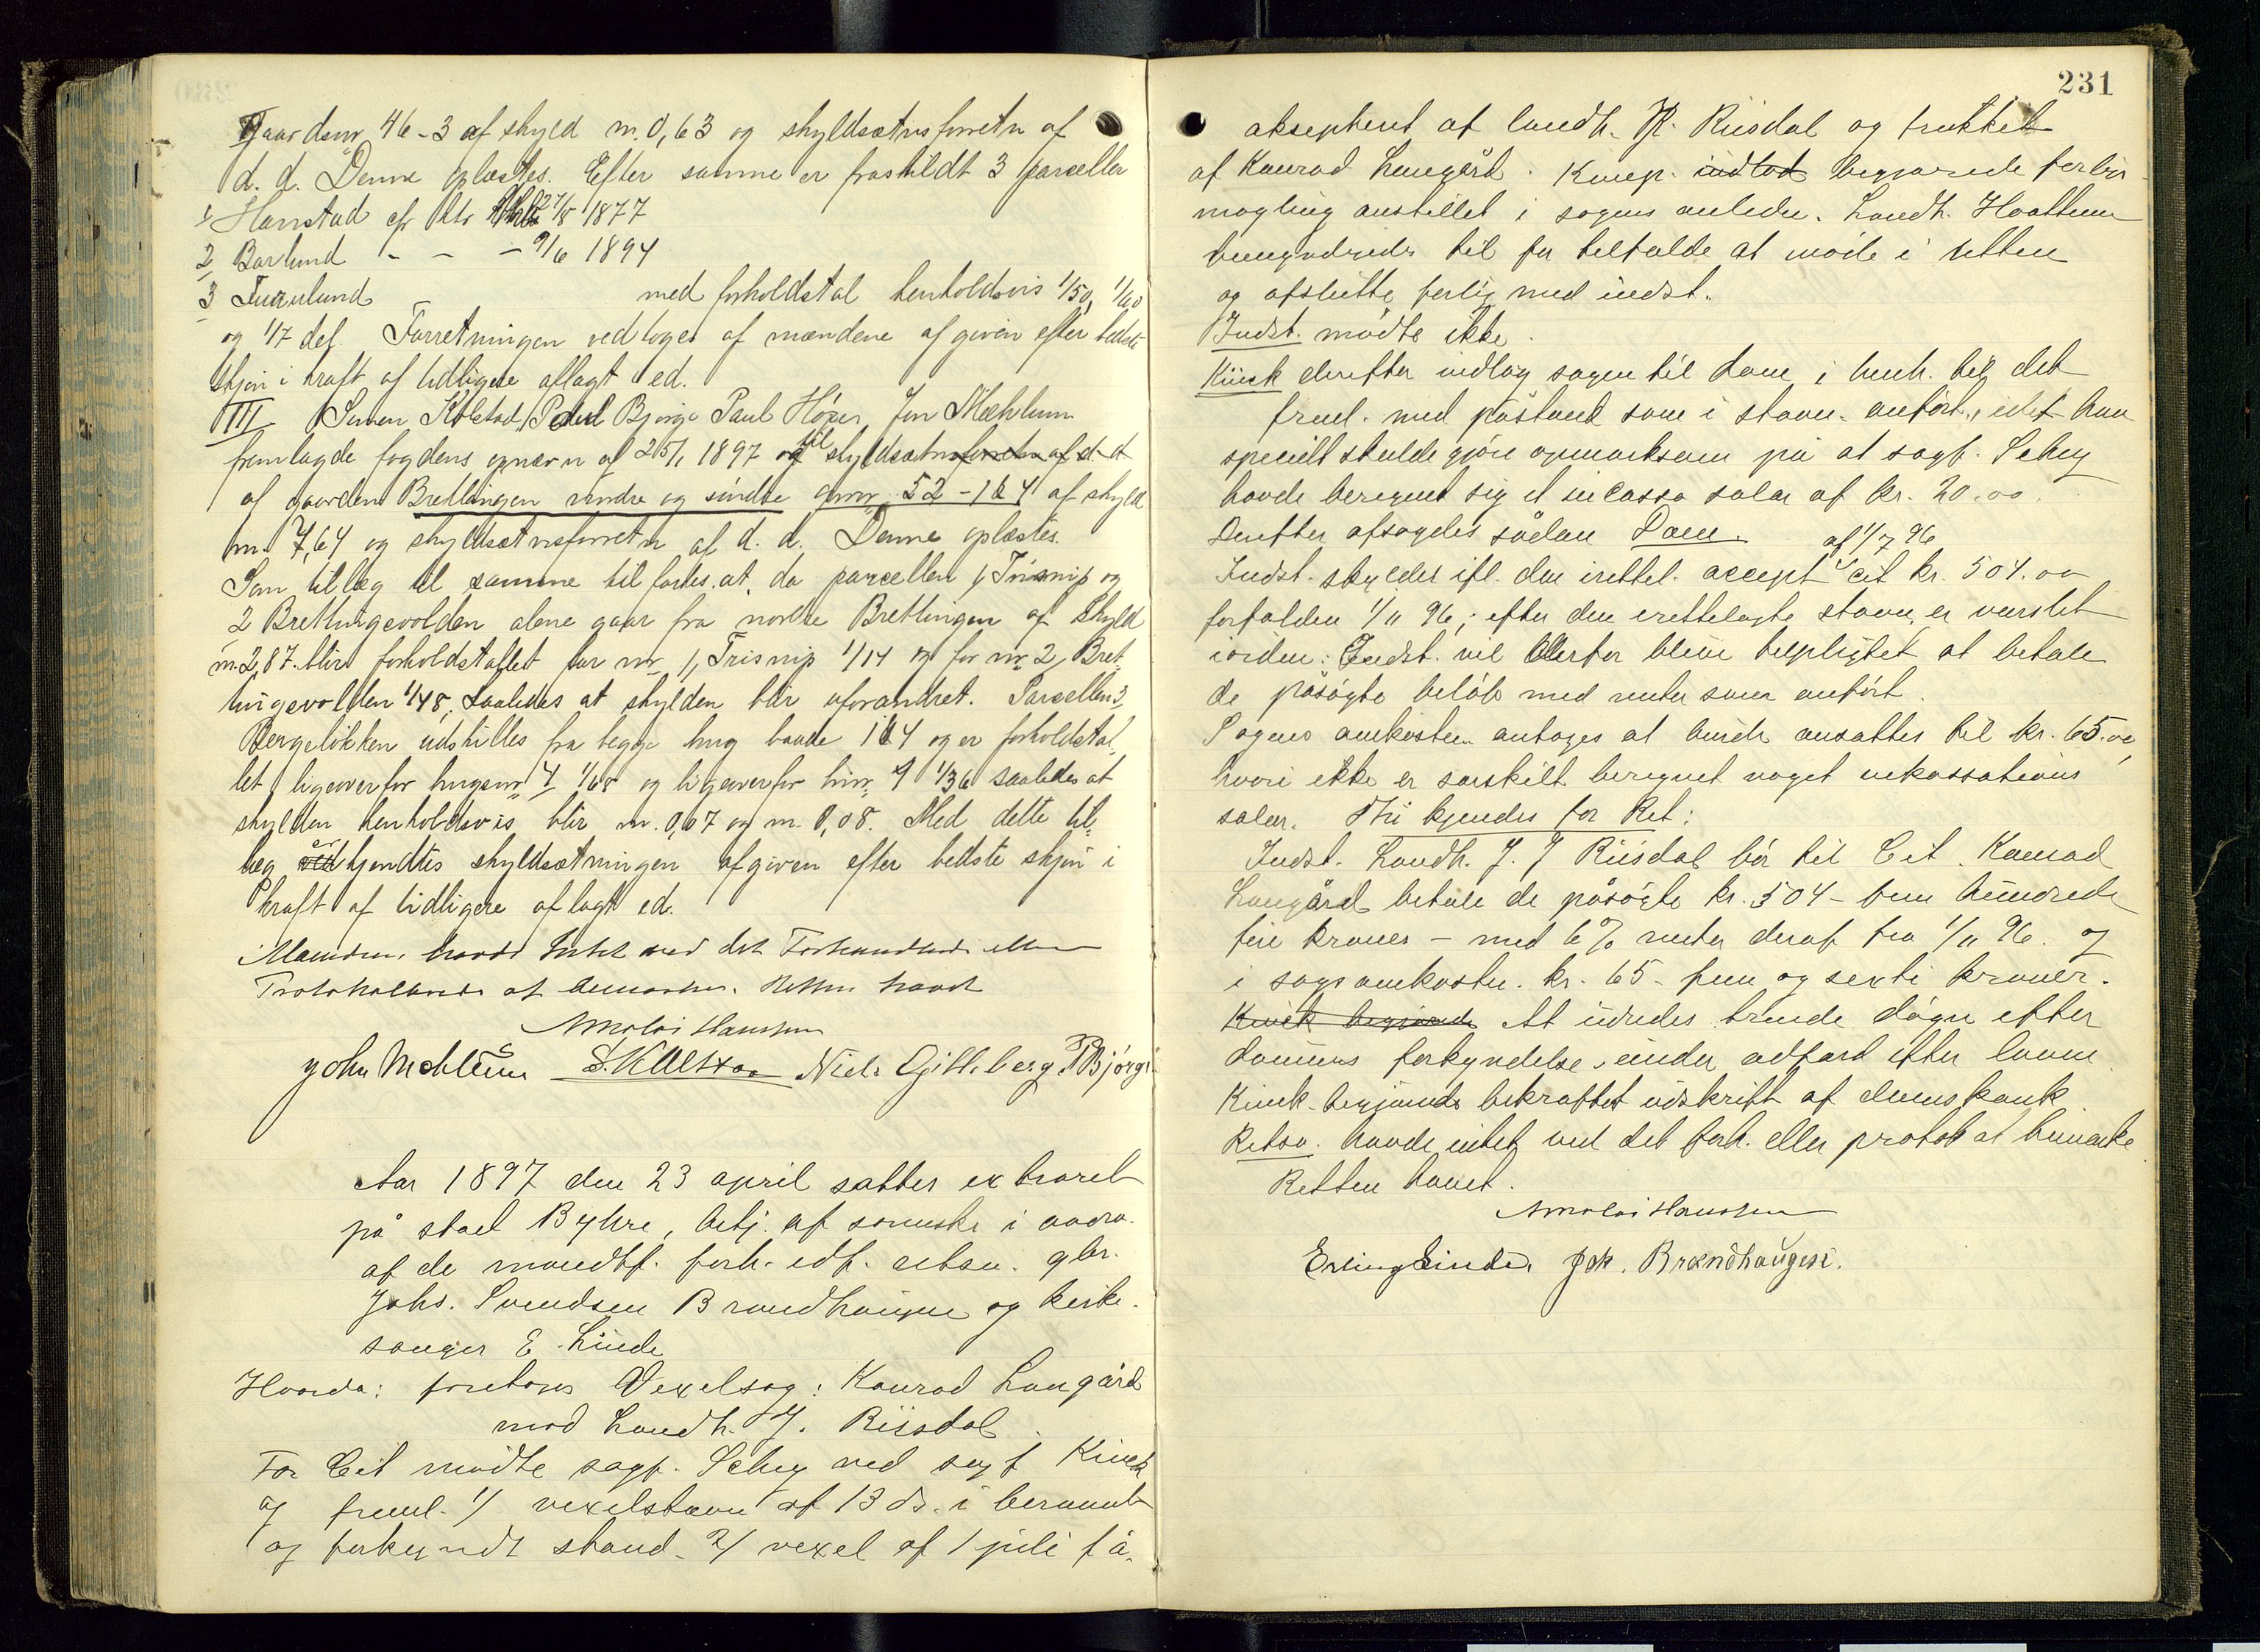 Gaardsnr. 46-3 af skyld m. 0,63 og skyldsætnsforretn af
d. d. Denne oplæstes. Efter samme er fraskildt 3 parceller
1 Hanstad 27/8 1877
2 Barlund - - - 9/6 1894
3 med forholdstal henholdsvis 1/50, 1/60
og 1/7 del. Forretningen vedtoges af mændene afgiven efter bedste
skjøn i kraft af tidligere aflagt ed.
III Simen Kolstad, Bjørge Paul Høyer Jon Mæhlum
fremlagde fogdens opnævn af 25/1 1897 til skyldsætnsforretn af d. d.
af gaarden Bretlingen nordre og søndre gnr. 52 - 1 & 4 af skyld
m. 7,64 og skyldsætnsforretn af d. d. Denne oplæstes.
Som tillæg til samme tilføies at, da parcellen 1, Trisnip og
2 Bretlingevolden alene gaar fra nordre Bretlingen af Skyld
m. 2,87. blir forholdstallet for nr. 1, Trisnip 1/14 og for nr 2, Bret-
lingevolden 1/48, saaledes at skylden blir uforandret. Parcellen 3,
Bergeløkken udskilles fra begge brug baade 1 & 4 og er forholdstal
let ligeoverfor brugsnr 1/68 og ligeoverfor 1/36 saaledes at
skylden henholdsvis blir m. 0,07 og m. 0,08. Med dette til-
læg er kjendtes skyldsætningen afgiven efter bedste skjøn i
kraft af tidligere aflagt ed.
Mændene havde Intet ved det Forhandlede eller
Protokollerede at bemærke. Retten hævet
Nicolai Hanssen
John Mehlum S. Kolstad Niels Gilleberg P Bjørge
Aar 1897 den 23 april sattes extraret
på stad Byhre, betj. af samme i
af de mundtl. forh. edf. retsv. gbr.
Johs. Svendsen Brandhaugen og kirke-
sanger E. Linde
Hvorda: foretoges Vexelsag: Konrad Langård
mod Landh. J. Riisdal.
For Cit mødte sagf. Schey ved sagf Kinck
og freml. 1/ vexelstævn af 13 ds. i berammet
og forkyndt stand. 2/ vexel af 1 juli f å.
231
aksepteret af landh. Riisdal og trukket
af Konrad Langård. Komp. indlod begjærede forlig-
mægling anstillet i sagens anledn. Landh. Haattum
bemyndiges til for at møde i retten
og afslutte forlig med indst.
Indst. mødte ikke.
Kinck derefter indlog sagen til dom i henh. til det
freml. med påstand som i stævn. anført, idet han
specielt skulde gjøre opmærksom på at sagf. Schey
havde beregnet sig et incasso salær af kr. 20.00.
Derefter afsagdes sådan Dom
af 1/7 96
Indst. skylder ifl. den irettel. accept cit kr. 504.00
forfalden 1/11 96; efter den irettelagte stævn er varslet
i orden. Indst. vil derfor blive tilpligtet at betale
de påsøgte beløb med renter som anført.
Sagens omkostn. antages at burde ansættes til kr. 65.00,
hvori ikke er særskilt beregnet noget inkassations
salær. Thi kjendes for Ret:
Indst. Landh. J. J Riisdal bør til Cit. Konrad
Langård betale de påsøgte kr. 504 - fem hundrede
fire kroner - med 6 % renter deraf fra 1/11 96. og
i sagsomkostn. kr. 65 - fem og sexti kroner.
Kinck begjærede At udredes trende døgn efter
dommens forkyndelse under adfærd efter loven
Kinck begjærede bekræftet udskrift af domsakt.
Retsv. havde intet ved det forh. eller protok at bemærke
Retten hævet.
Nicolai Hanssen
Erling Linde. Joh. Brændhaugen.